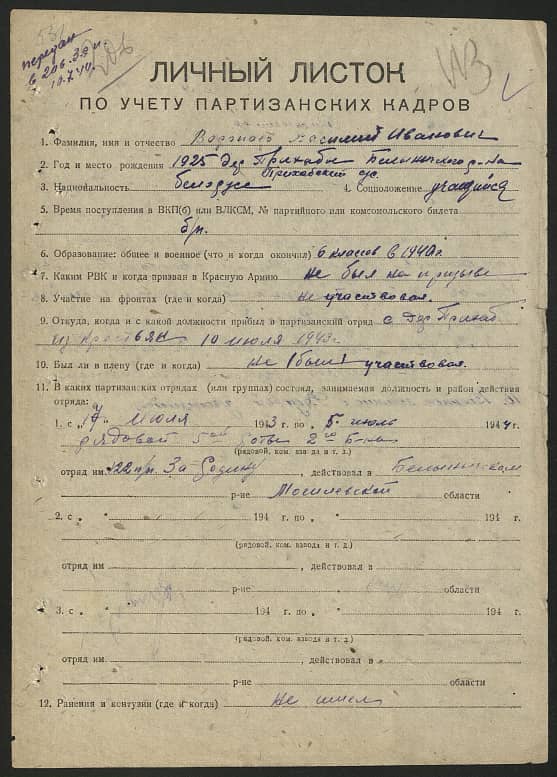 передан
в 206.
10.7.44.
206
ЛИЧНЫЙ ЛИСТОК
ПО УЧЕТУ ПАРТИЗАНСКИХ КАДРОВ
1. Фамилия, имя и отчество Василий Иванович
2. Год и место рождения 1925 дер. Прихабы Белыничского р-на
Прихабский с/с.
3. Национальность белорус 4. Соцположение учащийся
5. Время поступления в ВКП(б) или ВЛКСМ, № партийного или комсомольского билета
б/п.
6. Образование: общее и военное (что и когда окончил) 6 классов в 1940 г.
7. Каким РВК и когда призван в Красную Армию не был на призыве
8. Участие на фронтах (где и когда) не участвовал.
9. Откуда, когда и с какой должности прибыл в партизанский отряд с дер. Прихаб
из крестьян 10 июля 1943 г.
10. Был ли в плену (где и когда) не (был) участвовал.
11. В каких партизанских отрядах (или группах) состоял, занимаемая должность и район действия
отряда:
1. с „17" июля 1943 г. по „5" июль 1944 г.
рядовой 5ой роты 2го б-на
(рядовой, ком. взвода и т. д.)
отряд им. 122 п/п. За Родину, действовал в Белыничском
р-не Могилевской области
2. с „ " 194 г. по „ " 194 г.
(рядовой, ком. взвода и т. д.)
отряд им , действовал в
р-не области
3. с „ " 194 г. по „ " 194 г.
(рядовой, ком. взвода и т. д.)
отряд им , действовал в
р-не области
12. Ранения и контузии (где и когда) не имел